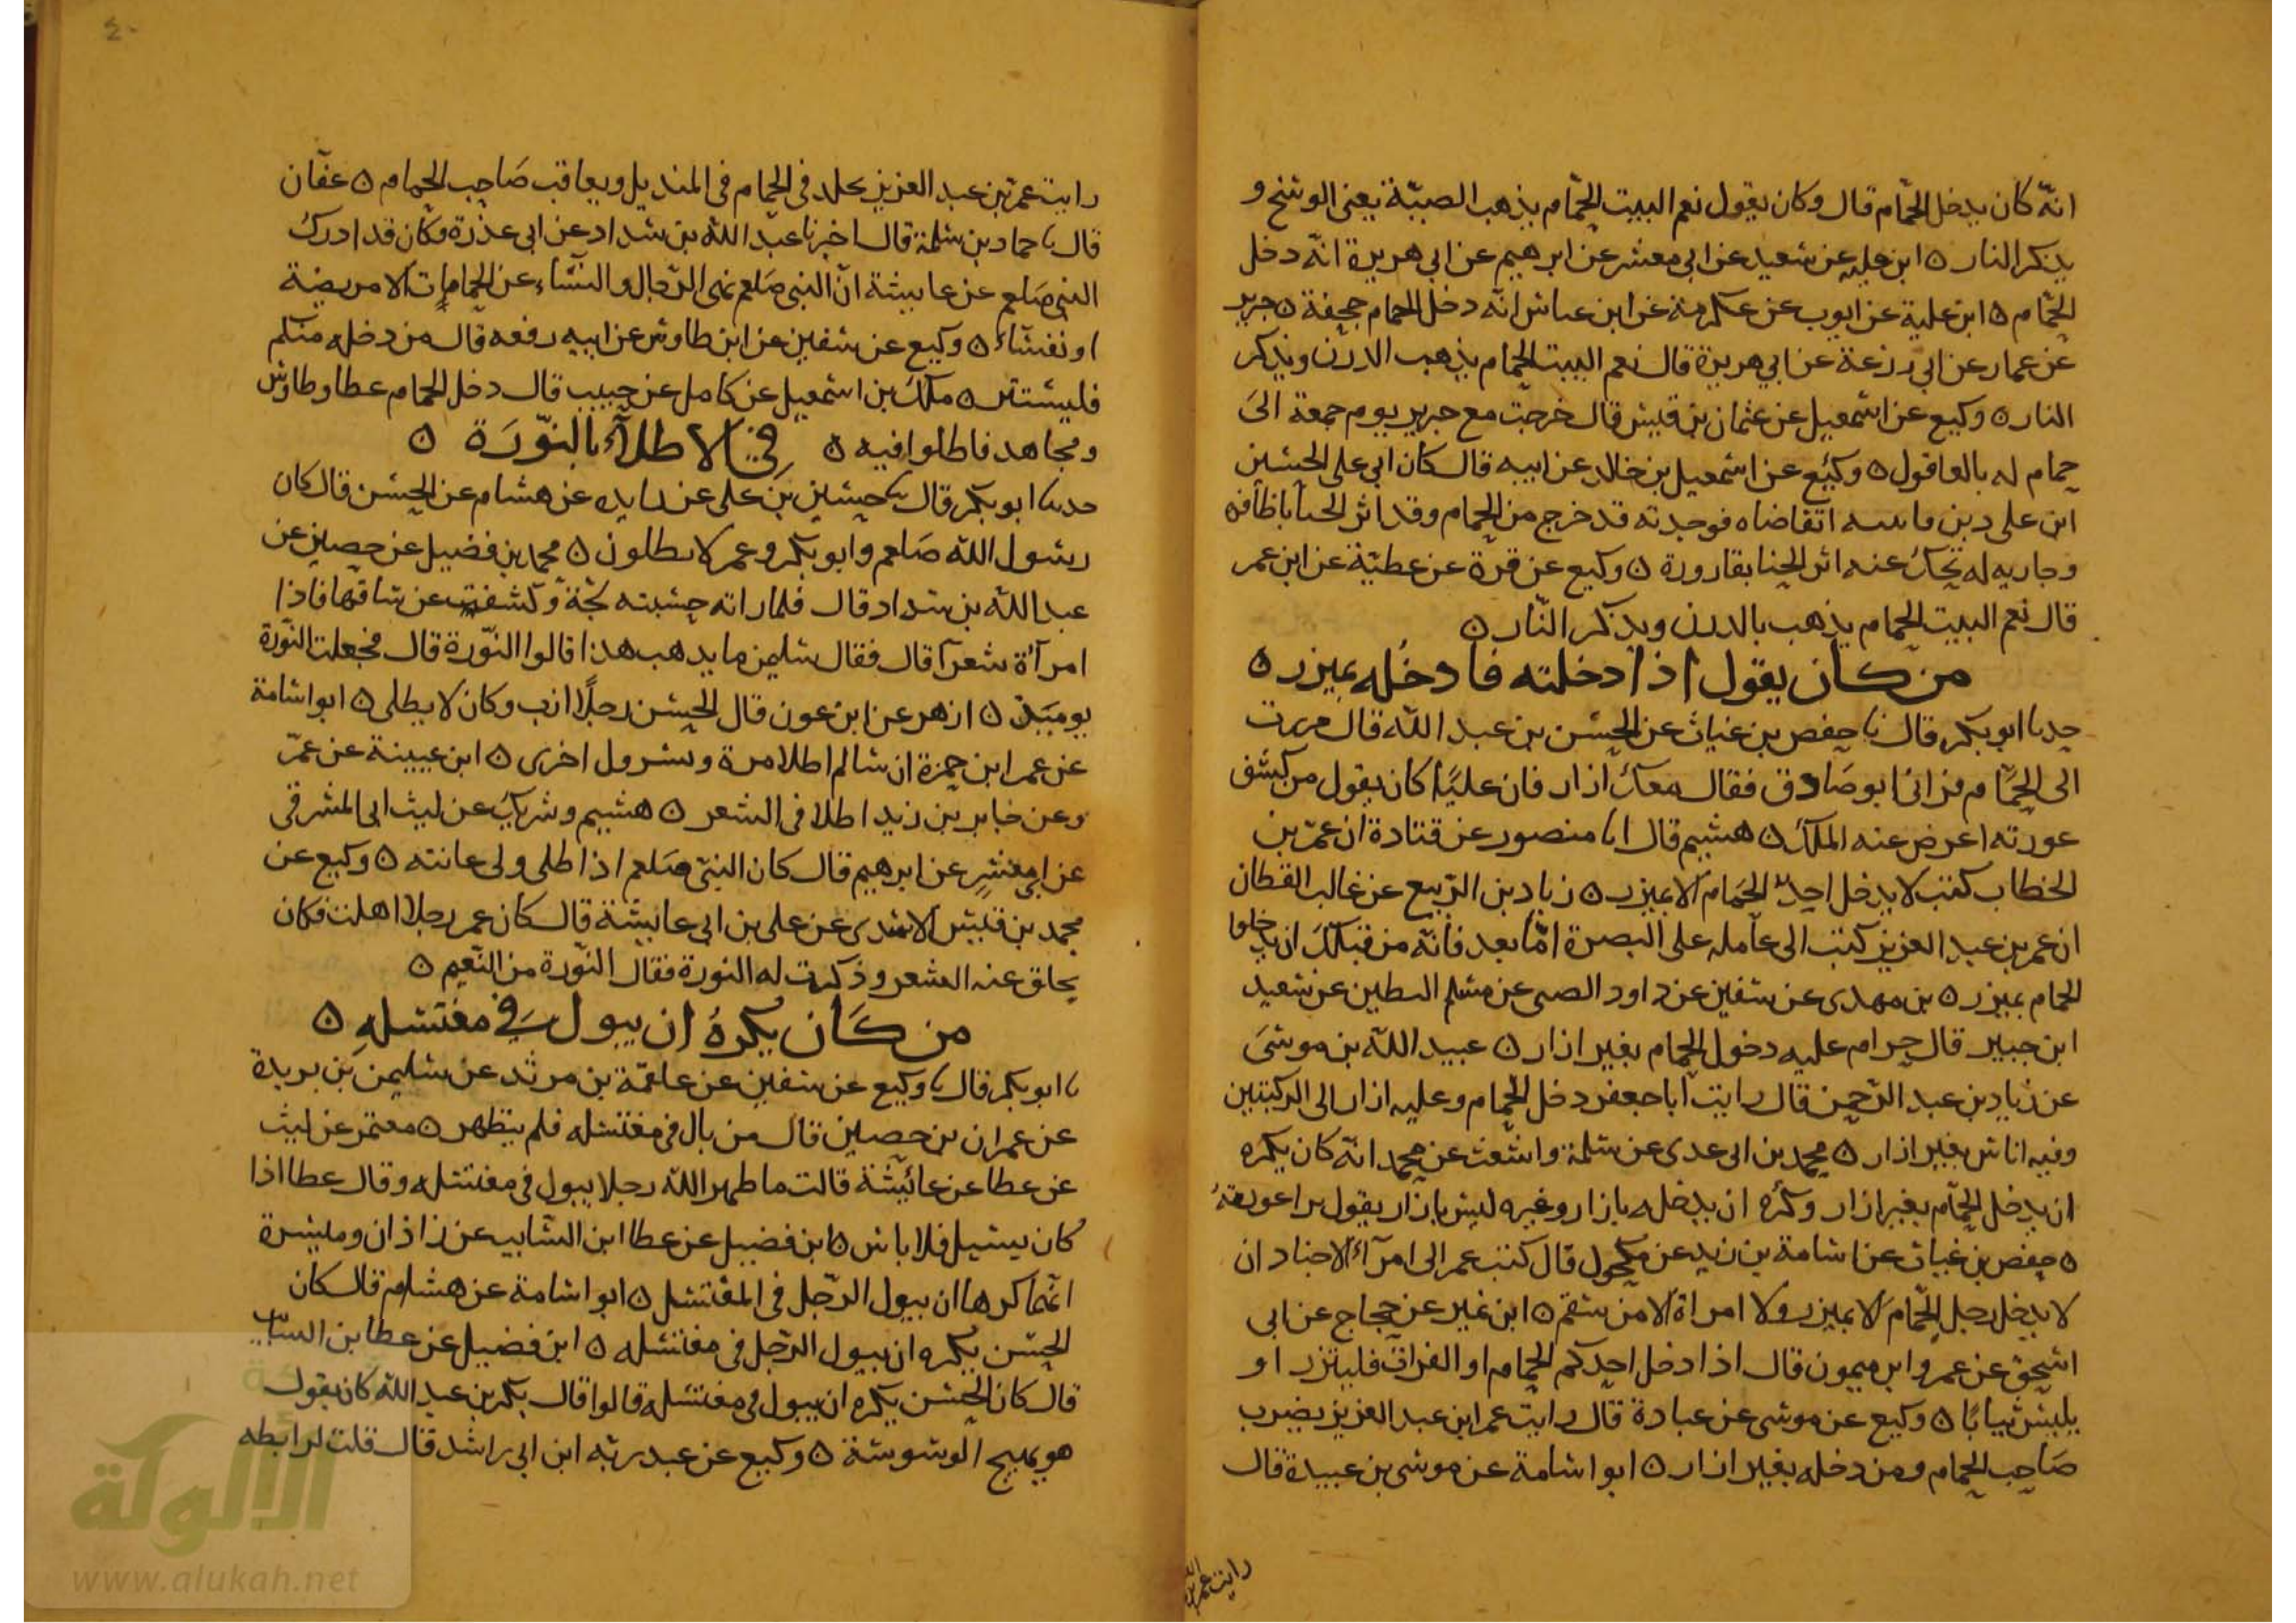 انه كان يدخل الحمام قال وكان يقول نعم البيت الحمام يذهب الصبنة يعنى الوسخ و
يذكر النار ه ابن علية عن سعيد عن ابي معشر عن ابرهيم عن ابي هريرة انه دخل
الحمام ه ابن علية عن ايوب عن عكرمة عن ابن عباس انه دخل الحمام جحفة ه جرير
عن عمار عن ابي زرعة عن ابي هريرة قال نعم البيت الحمام يذهب الدرن ويذكر
النار ه وكيع عن اسمعيل عن عثمان بن قيس قال خرجت مع جرير يوم جمعة الى
حمام له بالعاقول ه وكيع عن اسمعيل بن خالد عن ابيه قال كان ابي على الحسين
ابن على دين فاتيته اتقاضاه فوجدته قد خرج من الحمام وقد اثر الحنا باظافره
وجاريه له تحك عنه اثر الحنا بقارورة ه وكيع عن قرة عن عطية عن ابن عمر
قال نعم البيت الحمام يذهب بالدرن ويذكر النار ه
من كان يقول اذا دخلته فادخله بميزر ه
حدثنا ابو بكر قال نا حفص بن غياث عن الحسن بن عبد الله قال مررت
الى الحمام فراني ابو صادق فقال معك ازار فان عليا كان يقول من كشف
عورته اعرض عنه الملك ه هشيم قال انا منصور عن قتادة ان عمر بن
الخطاب كتب لا يدخل احد الحمام الا بميزر ه زياد بن الربيع عن غالب القطان
ان عمر بن عبد العزيز كتب الى عامله على البصرة اما بعد فانه من قبلك ان يدخلوا
الحمام بميزر ه بن مهدى عن سفين عن داود الضبى عن مسلم البطين عن سعيد
ابن جبير قال حرام عليه دخول الحمام بغير ازار ه عبيد الله بن موسى
عن زياد بن عبد الرحمن قال رايت ابا جعفر دخل الحمام وعليه ازار الى الركبتين
وفيه اناس بغير ازار ه محمد بن ابى عدى عن سلمة واشعث عن محمد انه كان يكره
ان يدخل الحمام بغير ازار وكره ان يدخله بازار وغيره ليس بازار يقول يرا عورته
ه حفص بن غياث عن اسامة بن زيد عن مكحول قال كتب عمر الى امرآء الاجناد ان
لا يدخل رجل الحمام الا بميزر ولا امراة الا من سقم ه ابن نمير عن حجاج عن ابى
اسحق عن عمرو ابن ميمون قال اذا دخل احدكم الحمام او الفرات فليتزر او
يلبس ثيابا ه وكيع عن موسى عن عبادة قال رايت عمر ابن عبد العزيز يضرب
صاحب الحمام ومن دخله بغير ازار ه ابو اسامة عن موسى بن عبيدة قال
رايت عمر بن
٤٠
رايت عمر بن عبد العزيز يجلد فى الحمام فى المنديل ويعاقب صاحب الحمام ه عفان
قال نا حماد بن سلمة قال اخبرنا عبد الله بن شداد عن ابى عذرة وكان قد ادرك
النبى صلعم عن عايشة ان النبى صلعم نهى الرجال والنساء عن الحمامات الا مريضة
او نفساء ه وكيع عن سفين عن ابن طاوس عن ابيه رفعه قال من دخله منكم
فليستتر ه ملك بن اسمعيل عن كامل عن حبيب قال دخل الحمام عطا وطاوس
ومجاهد فاطلوا فيه ه في الاطلاء بالنورة ه
حدثنا ابو بكر قال نا حسين بن على عن زايده عن هشام عن الحسن قال كان
رسول الله صلعم وابو بكر وعمر لا يطلون ه محمد بن فضيل عن حصين عن
عبد الله بن شداد قال فلما راته حسبته لجة وكشفت عن ساقها فاذا
امرأة شعرآ قال فقال سليمن ما يذهب هذا قالوا النورة قال فجعلت النورة
يوميذ ه ازهر عن ابن عون قال الحسن رجلا ازب وكان لا يطلى ه ابو اسامة
عن عمر ابن حمزة ان سالم اطلا مرة وتسرول اخرى ه ابن عيينة عن عمر
وعن جابر بن زيد اطلا فى الشعر ه هشيم وشريك عن ليث ابى المشرفى
عن ابى معشر عن ابرهيم قال كان النبي صلعم اذا طلى ولى عانته ه وكيع عن
محمد بن قيس الاسدى عن على بن ابى عايشة قال كان عمر رجلا اهلت فكان
يحلق عنه الشعر وذكرت له النورة فقال النورة من النعيم ه
من كان يكره ان يبول في مغتسله ه
نا ابو بكر قال نا وكيع عن سفين عن علقمة بن مرثد عن سليمن بن بريدة
عن عمران بن حصين قال من بال فى مغتسله فلم يتطهر ه معتمر عن ليث
عن عطا عن عائشة قالت ما طهر الله رجلا يبول فى مغتسله وقال عطا اذا
كان يسيل فلا باس ه ابن فضيل عن عطا ابن السايب عن زاذان وميسرة
انهما كرها ان يبول الرجل فى المغتسل ه ابو اسامة عن هشام قال كان
الحسن يكره ان يبول الرجل فى مغتسله ه ابن فضيل عن عطا بن السايب
قال كان الحسن يكره ان يبول فى مغتسله قالوا قال بكر بن عبد الله كان يقول
هو يهيج الوسوسة ه وكيع عن عبد ربه ابن ابى راشد قال قلت لرابطه
الألوكة
www.alukah.net